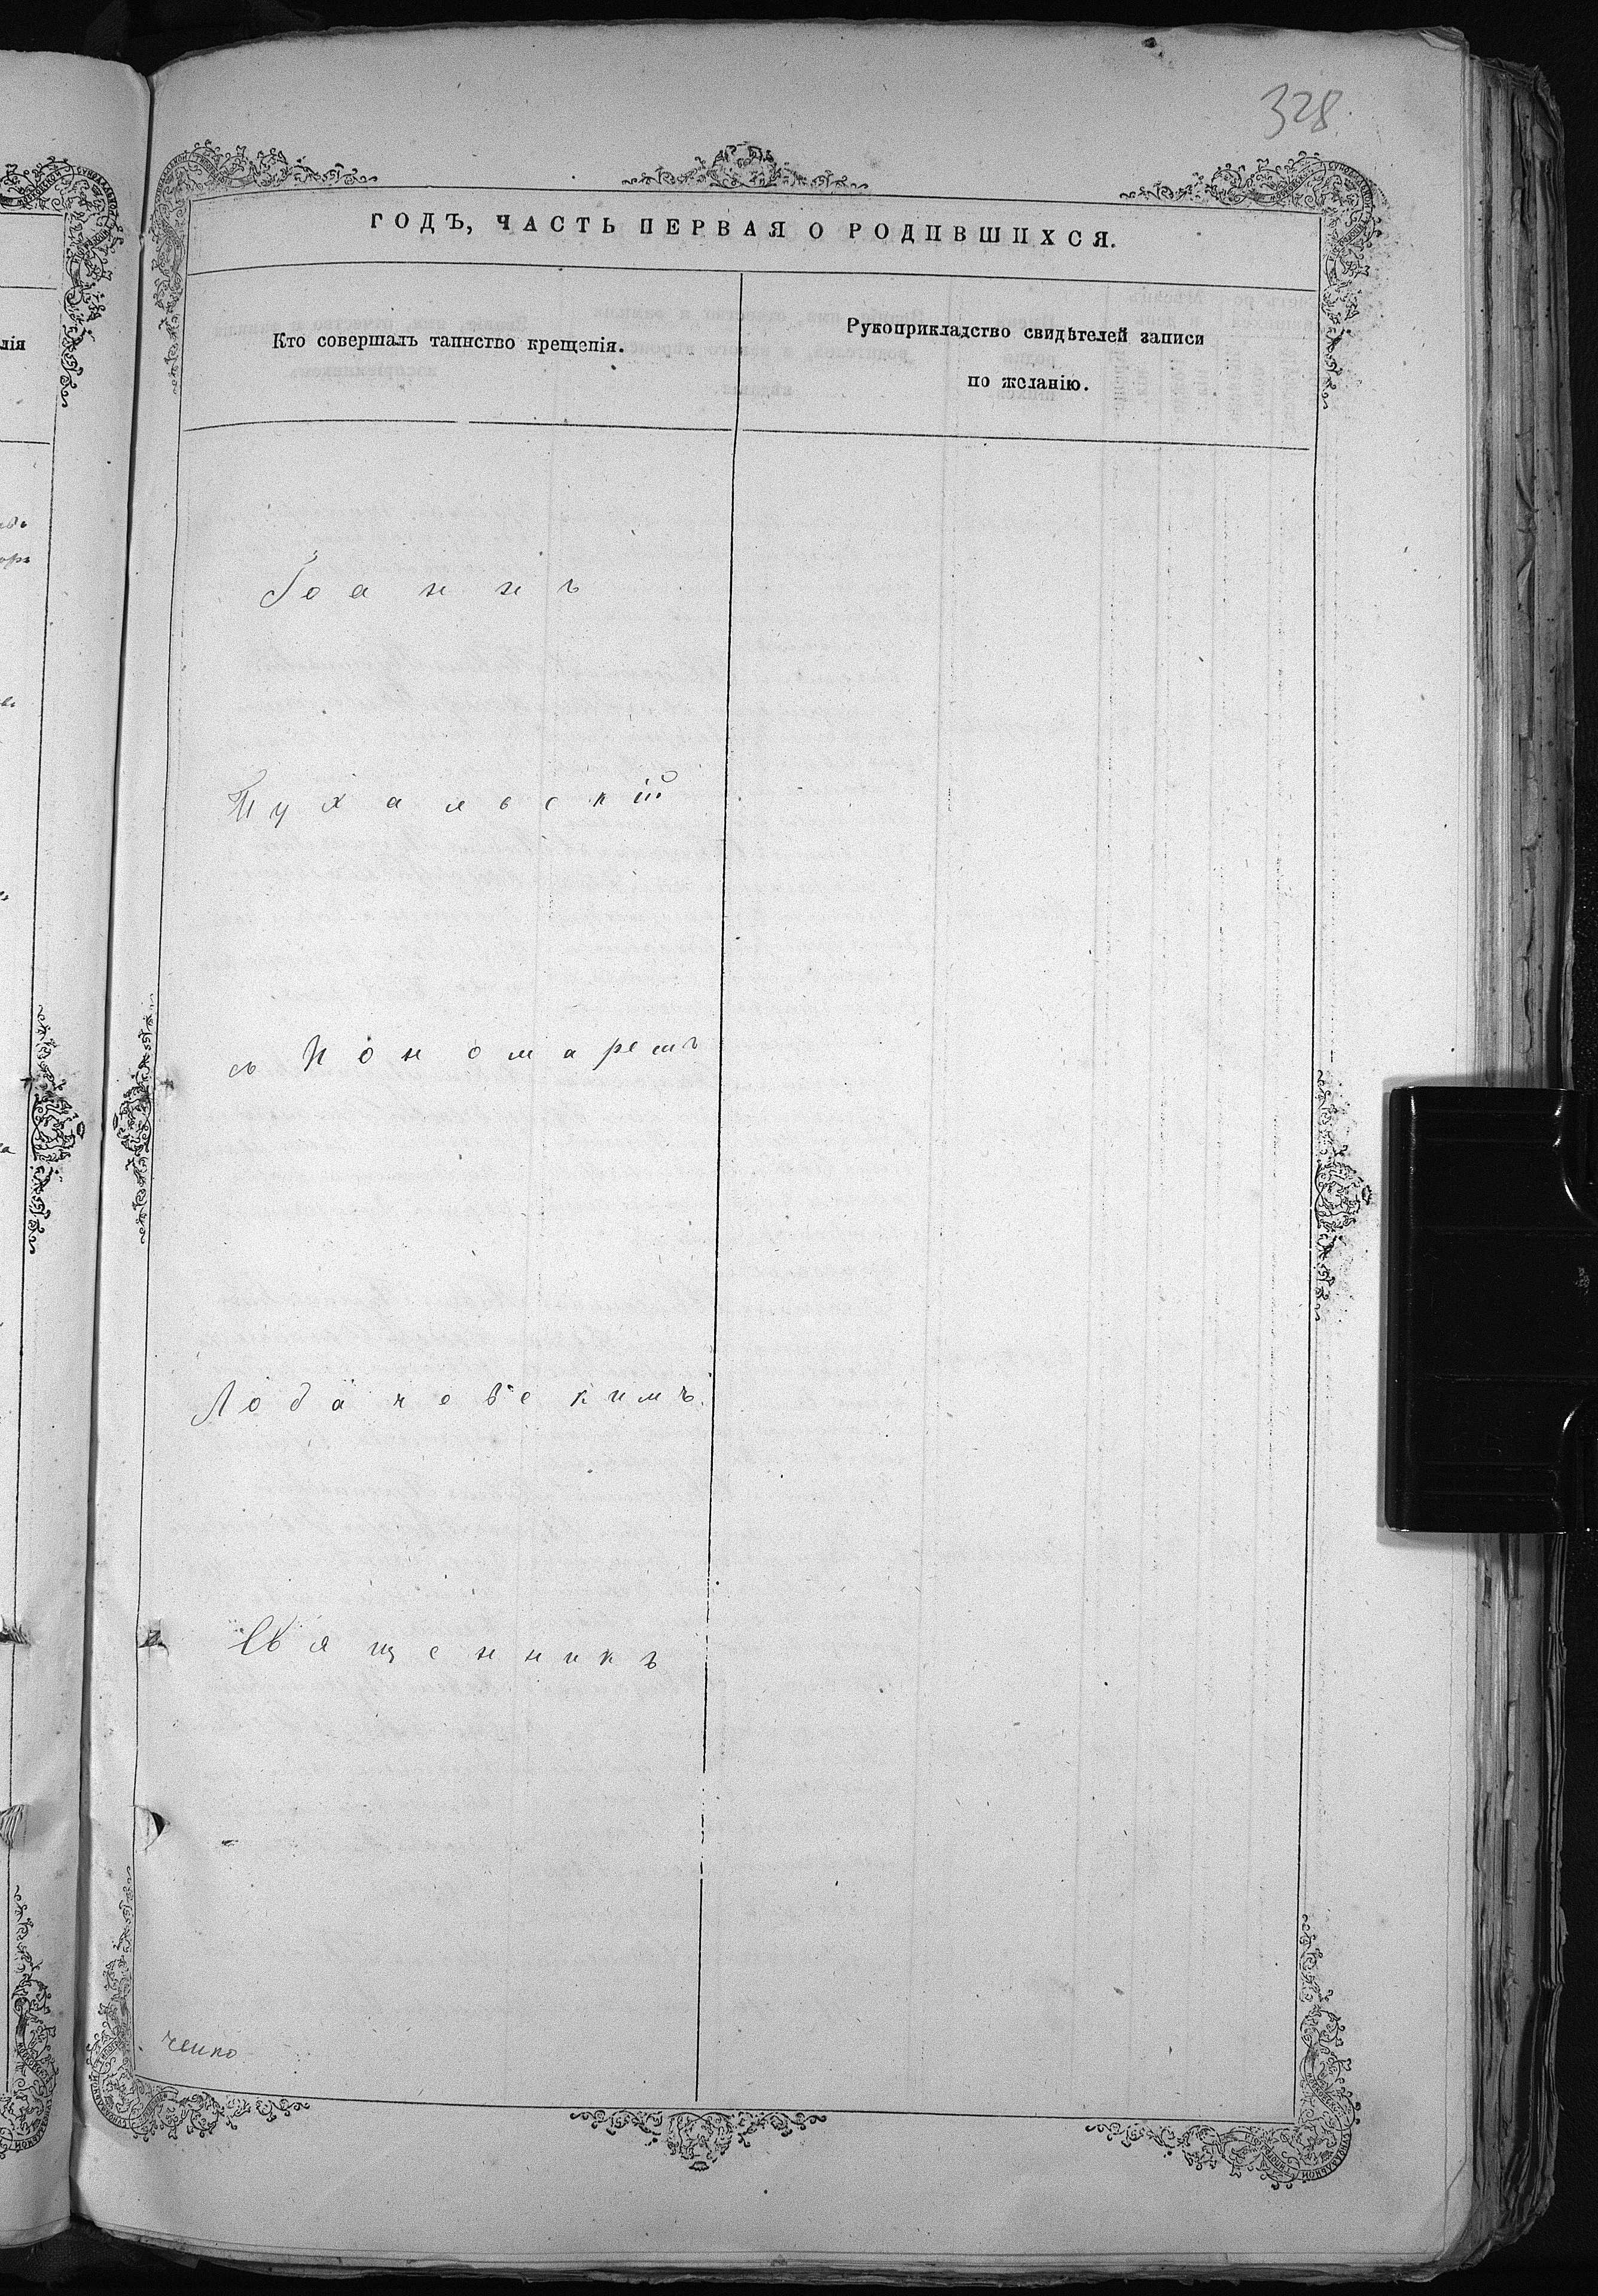 328
ГОДЪ, ЧАСТЬ ПЕРВАЯ О РОДИВШИХСЯ.
Кто совершалъ таинство крещенія.
Рукоприкладство свидѣтелей записи
по желанію.
Іоаннъ
Пухальскій
съ Пономаремъ
Лобачевскимъ
Священникъ
ченко